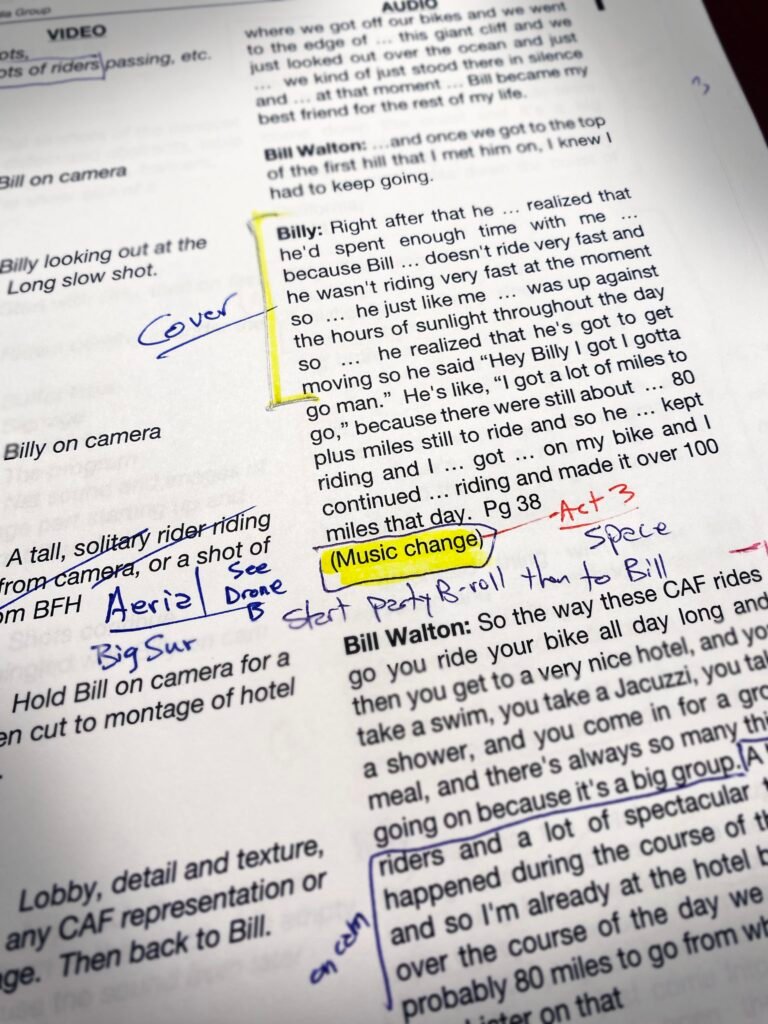 Group
VIDEO
of riders passing, etc.
Bill on camera
Billy looking out at the
Long slow shot.
Cover
Billy on camera
A tall, solitary rider riding
from camera, or a shot of
BFH
Aerial
See
Drone
B
Big Sur
Hold Bill on camera for a
cut to montage of hotel
Lobby, detail and texture,
any CAF representation or
Then back to Bill.
AUDIO
where we got off our bikes and we went
to the edge of ... this giant cliff and we
just looked out over the ocean and just
... we kind of just stood there in silence
and ... at that moment ... Bill became my
best friend for the rest of my life.
Bill Walton: ...and once we got to the top
of the first hill that I met him on, I knew I
had to keep going.
Billy: Right after that he ... realized that
he'd spent enough time with me ...
because Bill ... doesn't ride very fast and
he wasn't riding very fast at the moment
so ... he just like me ... was up against
the hours of sunlight throughout the day
so ... he realized that he's got to get
moving so he said “Hey Billy I got I gotta
go man.” He's like, “I got a lot of miles to
go,” because there were still about ... 80
plus miles still to ride and so he ... kept
riding and I ... got ... on my bike and I
continued ... riding and made it over 100
miles that day. Pg 38
Act 3
(Music change)
Space
Start party B-roll then to Bill
Bill Walton: So the way these CAF rides
go you ride your bike all day long and
then you get to a very nice hotel, and
take a swim, you take a Jacuzzi, you
a shower, and you come in for a
meal, and there's always so many
going on because it's a big group. A
riders and a lot of spectacular
happened during the course of
and so I'm already at the hotel
over the course of the day we
probably 80 miles to go from
on that
on cam